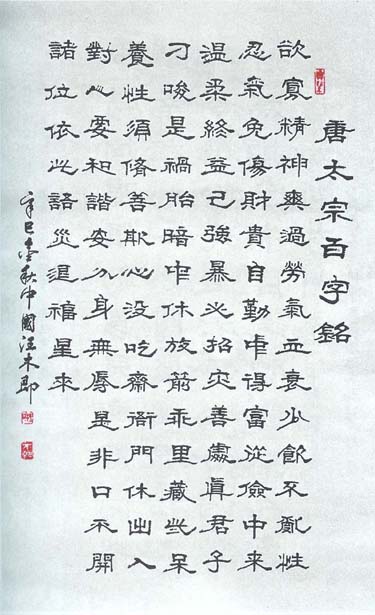 唐太宗百字銘
欲寡精神爽過勞氣血衰少飲不亂性
忍氣免傷財貴自勤中得富從儉中來
溫柔終益己強暴必招灾善處真君子
刁唆是禍胎暗中休放箭乖里藏些呆
養性須脩善欺心没吃齋衙門休出入
對人要和諧安分身無辱是非口不開
諸位依此語災退福星来
辛巳金秋中國汪木